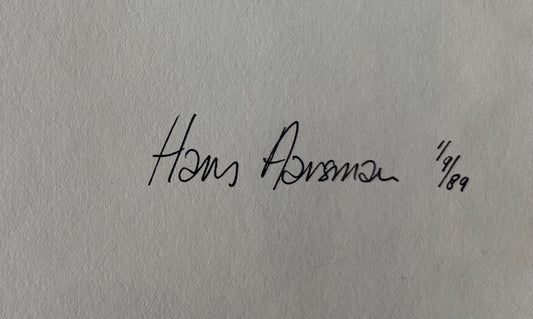 Hans Aarsman 1/9/89